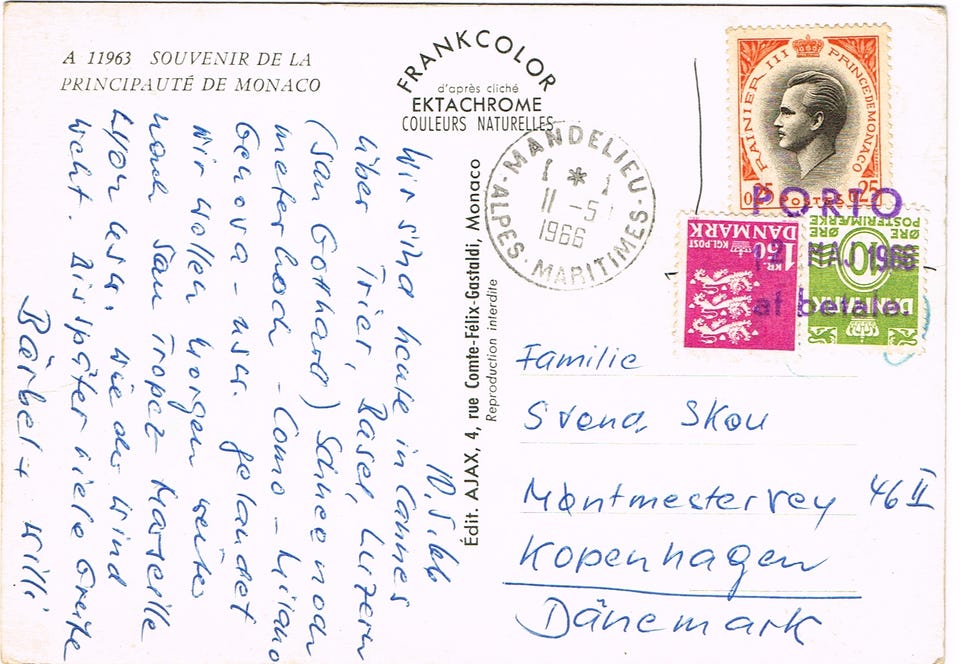 A 11963 SOUVENIR DE LA
PRINCIPAUTÉ DE MONACO
FRANKCOLOR
d'après cliché
EKTACHROME
COULEURS NATURELLES
10.5.66
Wir sind heute in Cannes
über Trier, Basel, Luzern
(San Gothard) Schnee noch
meterhoch - Como - Milano
Genova - usw. gelandet
Wir wollen morgen weiter
nach San Tropez - Marseille
Lyon usw. wie der Wind
weht. Bis später viele Grüße
Bärbel + Willi
Édit. AJAX, 4, rue Comte-Félix-Gastaldi, Monaco
Reproduction interdite
MANDELIEU
11 -5
1966
ALPES-MARITIMES
RAINIER III PRINCE DE MONACO
0,25 POSTES 0,25
PORTO
12 MAJ 1966
at betale.
1.50 KR
KGL POST
DANMARK
POSTFRIMÆRKE
ØRE 10 ØRE
DANMARK
Familie
Svend Skou
Møntmestervey 46 II
Kopenhagen
Dänemark